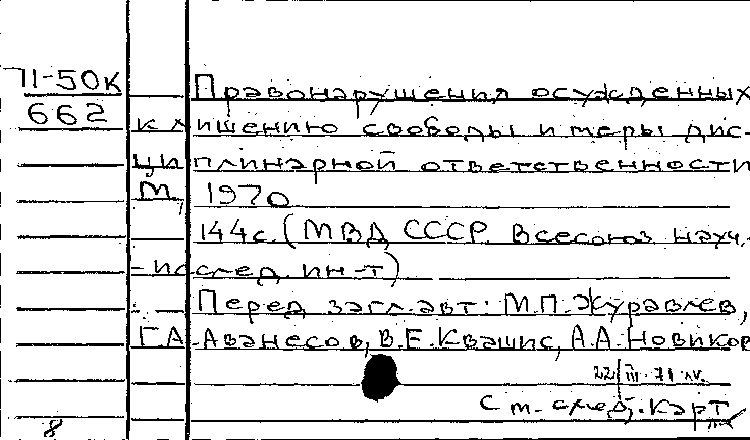 71-50к
662
Правонарушения осужденных
к лишению свободы и меры дис-
циплинарной ответственности
М, 1970
144с. (МВД СССР. Всесоюз науч.-
-исслед. ин-т)
Перед загл. авт: М.П. Журавлев,
Г.А. Аванесов, В.Е. Квашис, А.А. Новиков
22/III-71
См. след. карт
8